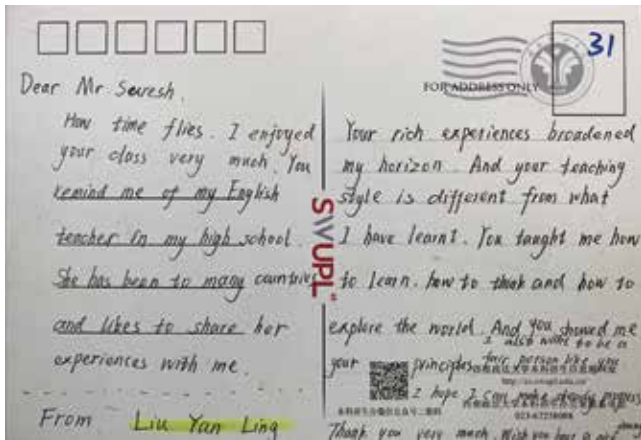 31
FOR ADDRESS ONLY
Dear Mr Suresh,
How time flies. I enjoyed
your class very much. You
remind me of my English
teacher in my high school.
She has been to many countries
and likes to share her
experiences with me.
From Liu Yan Ling
SWUPL
Your rich experiences broadened
my horizon. And your teaching
style is different from what
I have learnt. You taught me how
to learn, how to think and how to
explore the world. And you showed me
your principles
I also want to be a
fair person like you
I hope I can make steady progress
Thank you very much. Wish you have a